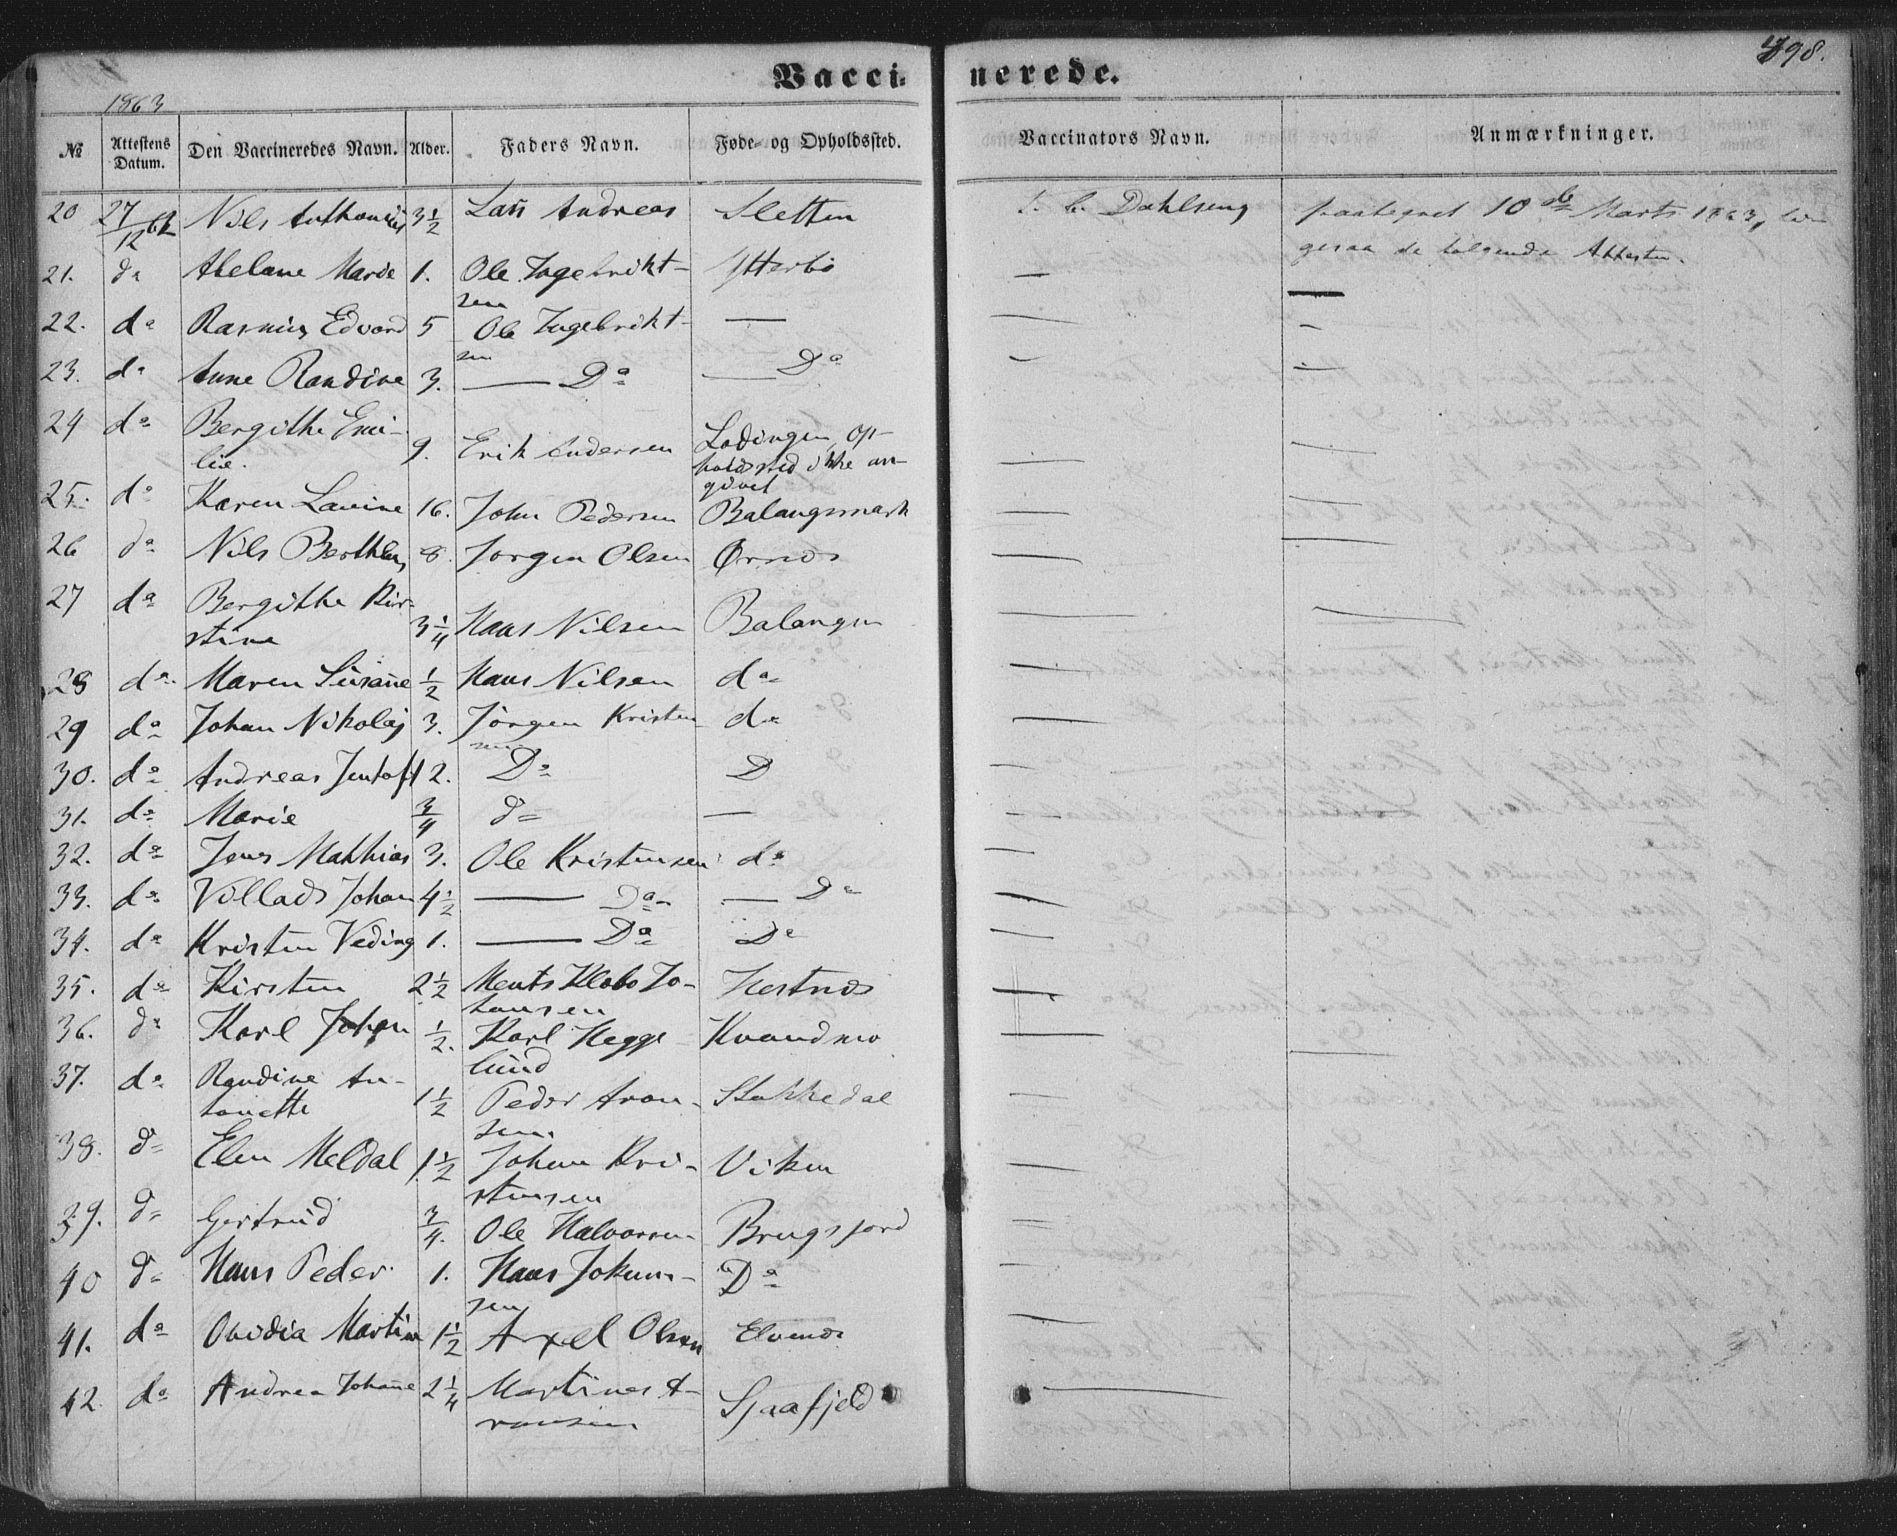 498.
Vaccinerede.
1863
№ Attestens Datum. Den Vaccineredes Navn. Alder. Faders Navn. Føde- og Opholdssted. Vaccinators Navn. Anmærkninger.
20 27/12 62 Nils Anthonius 3 1/2 Lars Andreas Sletten Dahlseng paategnet 10de Marts 1863,
21. da Marie 1. Ole Ingebrikt- Ytterbö — de følgende Attester.
sen —
22. da Rasmus Edvard 5 Ole Ingebrikt- — — —
sen
23. da Anne Randine 3. — Da — Da — —
24 da Bergithe Emi- 9. Erik Andersen Lødingen, Op-
lie. holdssted ikke an- — —
givet
25. da Karen Lavine 16. John Pedersen Balangsmark — —
26 da Nils Berthleus 8. Jørgen Olsen Ørnes — —
27 da Bergithe Kir-
stine 3 1/4 Hans Nilsen Balangen — —
28 da Maren Susanne 1/2 Hans Nilsen da —
29 da Johan Nikolaj 3. Jörgen Kristen- da —
sen
30. da Andreas Jentoft 12. Da D —
31. da Marie 3/4 da — —
32. da Jens Mathias 3. Ole Kristensen da —
33. da Villads Johan 4 1/2 — Da — Da —
34. da Kristen Veding 1. — Da Da —
35. da Kirsten 2 1/2 Ments Klebo Jo- Hestnes —
hansen
36. da Karl Johan 1/2. Karl Hegge- Kvandmo — —
lund
37. da Randine An-
tonette 1 1/2 Peder Aron- Stokkedal —
sen.
38. da Elen Meldal 1 1/2 Johan Kri- Viken —
stensen
39. da Gertrud 3/4. Ole Halvorsen Brugsjord —
40 da Hans Peder 1. Hans Johan- Da —
sen
41. da Ovidia Martine 1 1/2 Axel Olsen Elvenes —
42. da Andrea Johanne 2 1/4 Martinus A-
ronsen Sjaafjeld —